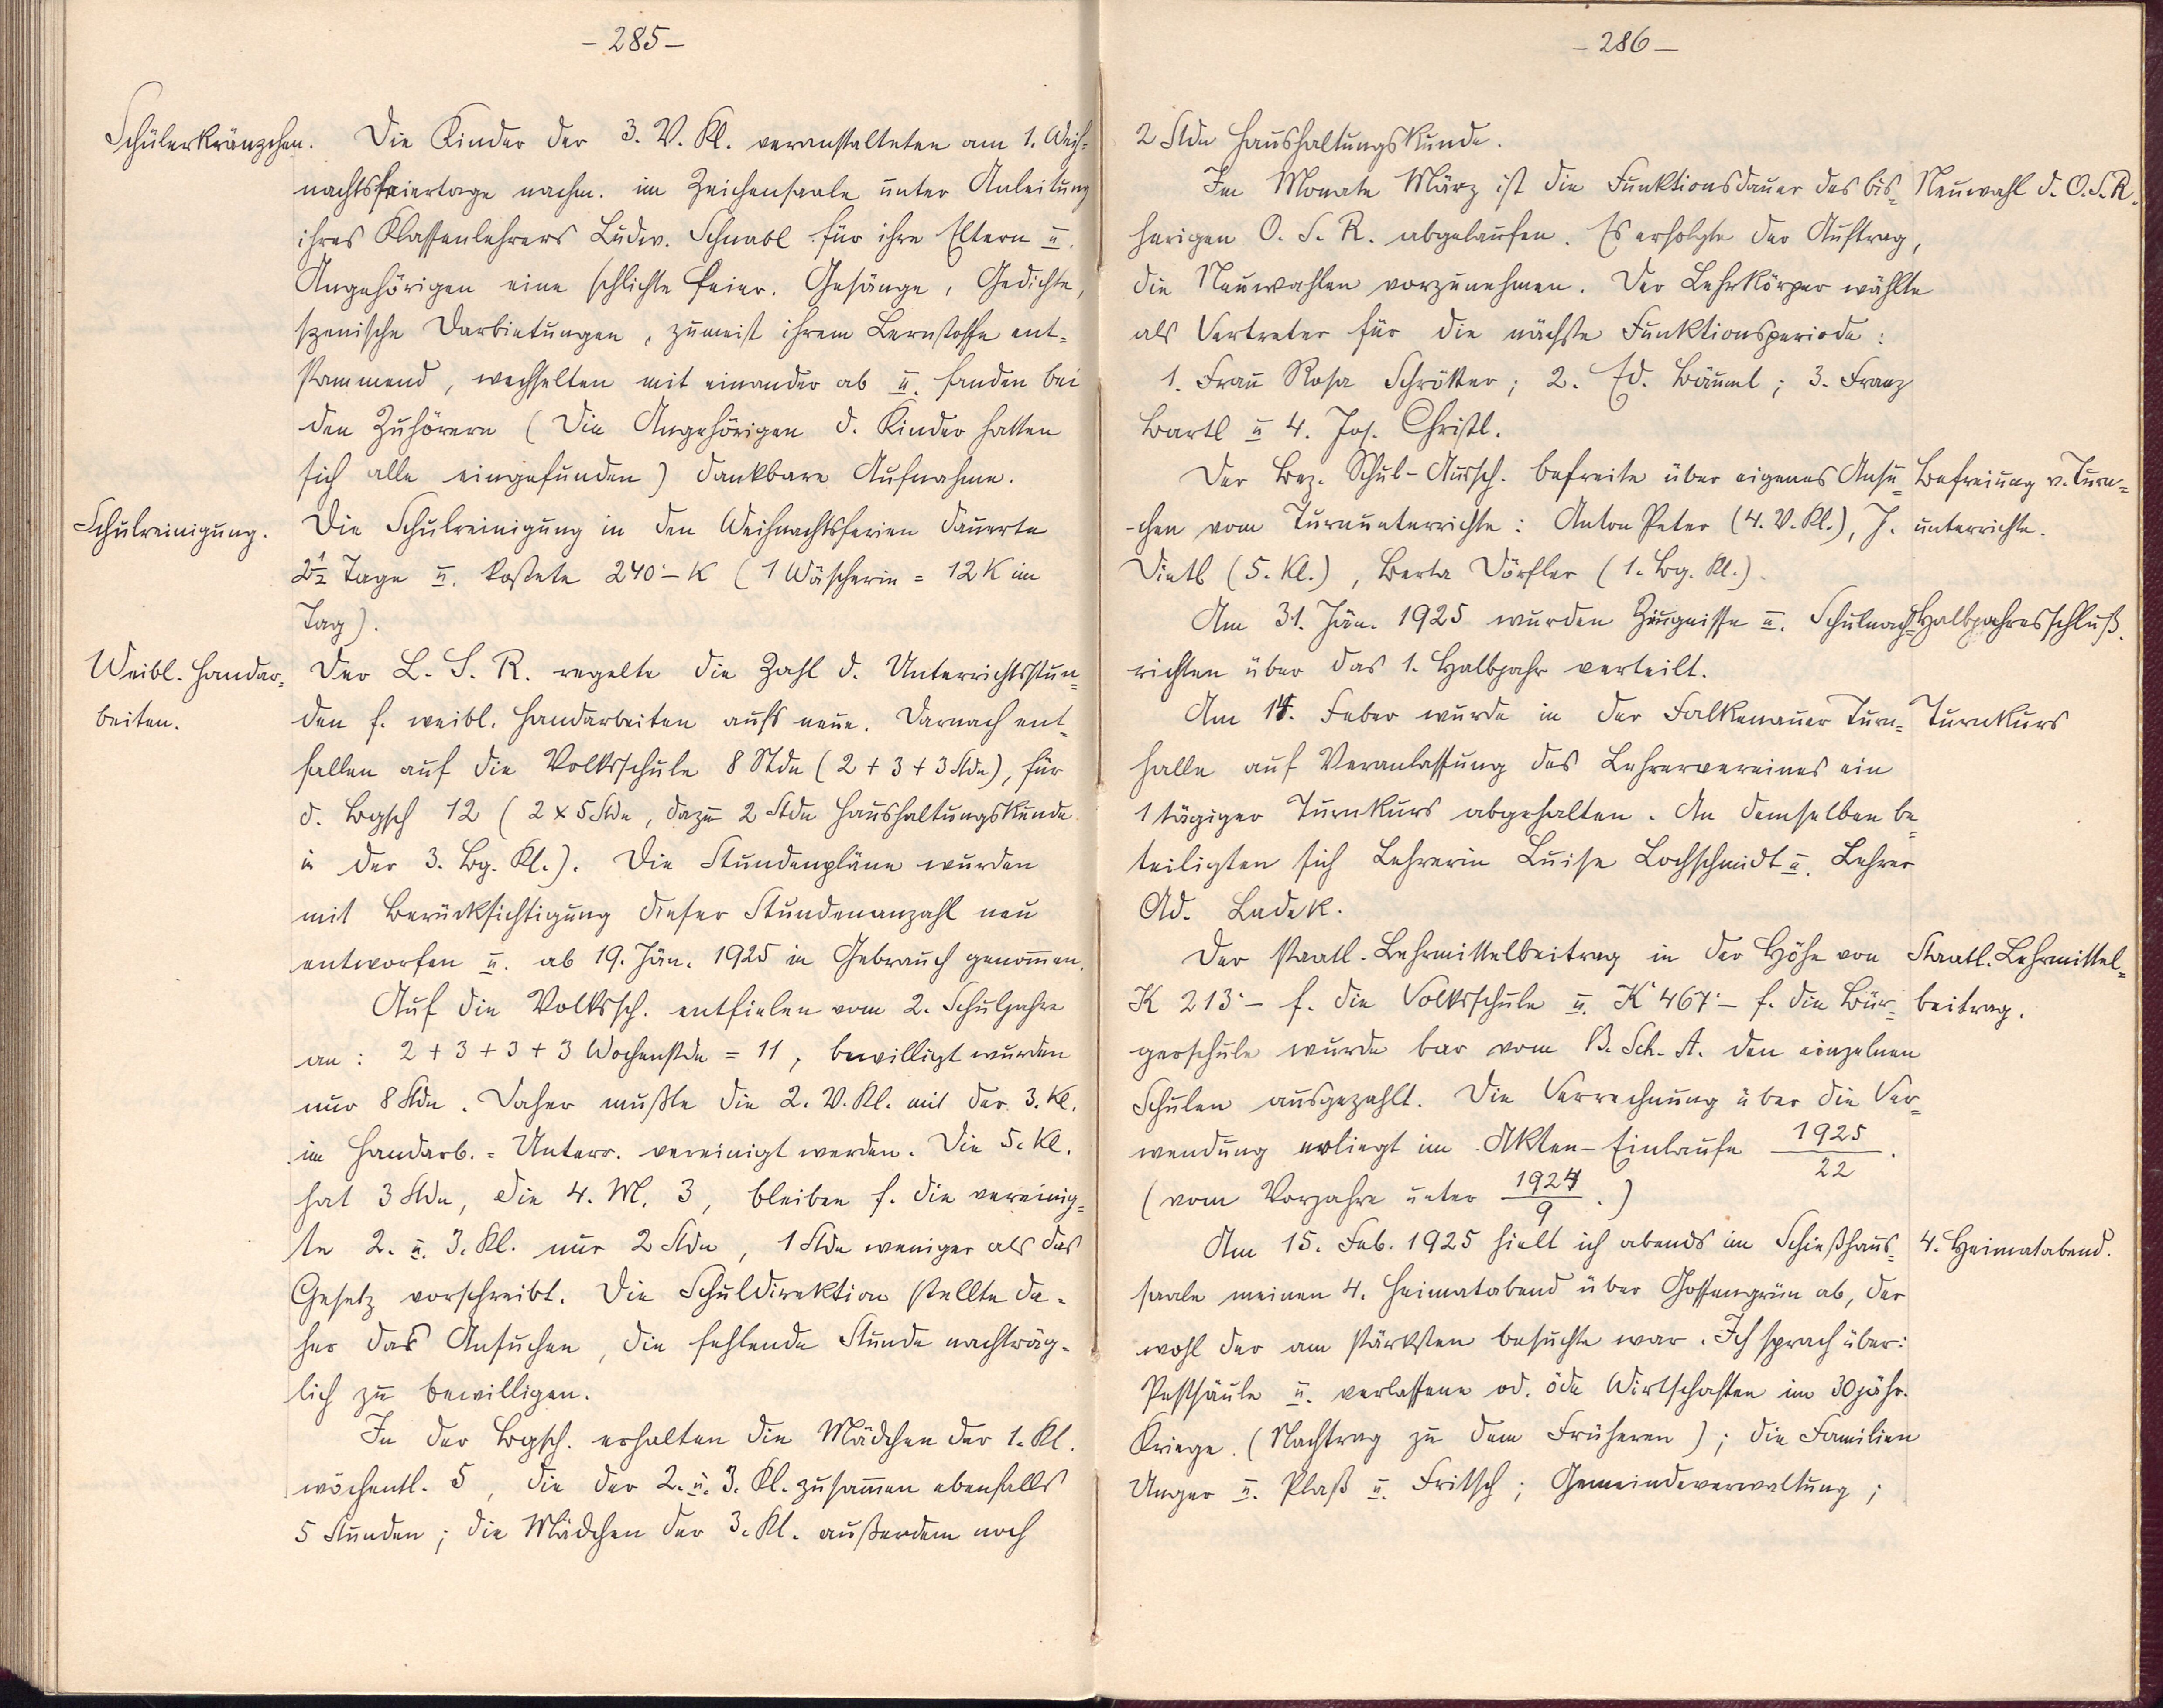 - 285 -
Schülerkränzchen.
Die Kinder der 3. V. Kl. veranstalteten am 1. Weih-
nachtsfeiertage nachm. im Zeichensaale unter Anleitung
ihres Klassenlehrers Ludw. Schnabl für ihre Eltern u.
Angehörigen eine schlichte Feier. Gesänge, Gedichte,
szenische Darbietungen, zumeist ihrem Lernstoffe ent-
stammend, wechselten mit einander ab u. fanden bei
den Zuhörern (Die Angehörigen d. Kinder hatten
sich alle eingefunden) dankbare Aufnahme.
Schulreinigung.
Die Schulreinigung in den Weihnachtsferien dauerte
2½ Tage u. kostete 240·- K (1 Wäscherin = 12 K im
Tag).
Weibl. Handar-
beiten.
Der L. S. R. regelte die Zahl d. Unterrichtsstun-
den f. weibl. Handarbeiten aufs neue. Darnach ent-
fallen auf die Volksschule 8 Stdn (2 + 3 + 3 Stdn), für
d. Bgsch 12 (2 x 5 Stdn, dazu 2 Stdn Haushaltungskunde
in der 3. Bg. Kl.). Die Stundenpläne wurden
mit Berücksichtigung dieser Stundenanzahl neu
entworfen u. ab 19. Jän. 1925 in Gebrauch genommen.
Auf die Volkssch. entfielen vom 2. Schuljahre
an: 2 + 3 + 3 + 3 Wochenstdn = 11, bewilligt wurden
nur 8 Stdn. Daher mußte die 2. V. Kl. mit der 3. Kl.
im Handarb.-Unterr. vereinigt werden. Die 5. Kl.
hat 3 Stdn, die 4. Kl. 3, bleiben f. die vereinig-
te 2. u. 3. Kl. nur 2 Stdn, 1 Stde weniger als das
Gesetz vorschreibt. Die Schuldirektion stellte da-
her das Ansuchen, die fehlende Stunde nachträg-
lich zu bewilligen.
In der Bgsch. erhalten die Mädchen der 1. Kl.
wöchentl. 5, die der 2. u. 3. Kl. zusammen ebenfalls
5 Stunden; die Mädchen der 3. Kl. außerdem noch
- 286 -
2 Stdn Haushaltungskunde.
Im Monate März ist die Funktionsdauer des bis-
Neuwahl d. O. S. R.
herigen O. S. R. abgelaufen. Es erfolgte der Auftrag,
die Neuwahlen vorzunehmen. Der Lehrkörper wählte
als Vertreter für die nächste Funktionsperiode:
1. Frau Rosa Schrötter; 2. Ed. Bäuml; 3. Franz
Bartl u 4. Jos. Christl.
Der Bez. Schul-Aussch. befreite über eigenes Ansu-
Befreiung v. Turn-
-chen vom Turnunterrichte: Anton Peter (4. V. Kl.), J.
unterrichte.
Dietl (5. Kl.), Berta Dörfler (1. Bg. Kl.).
Am 31. Jän. 1925 wurden Zeugnisse u. Schulnach-
Halbjahresschluß.
richten über das 1. Halbjahr verteilt.
Am 14. Feber wurde in der Falkenauer Turn-
Turnkurs
halle auf Veranlassung des Lehrervereines ein
1 tägiger Turnkurs abgehalten. An demselben be-
teiligten sich Lehrerin Luise Lochschmidt u. Lehrer
Ad. Ladek.
Der staatl. Lehrmittelbeitrag in der Höhe von
Staatl. Lehrmittel-
K 213·- f. die Volksschule u. K 467·- f. die Bür-
beitrag.
gerschule wurde bar vom B. Sch. A. den einzelnen
Schulen ausgezahlt. Die Verrechnung über die Ver-
wendung erliegt im Akten-Einlaufe 1925/22.
(vom Vorjahre unter 1924/9.)
Am 15. Feb. 1925 hielt ich abends im Schießhaus-
4. Heimatabend.
saale meinen 4. Heimatabend über Gossengrün ab, der
wohl der am stärksten besuchte war. Ich sprach über:
Pestsäule u. verlassene od. öde Wirtschaften im 30jähr.
Kriege. (Nachtrag zu dem Früheren); die Familien
Unger u. Plaß u. Fritsch; Gemeindeverwaltung;